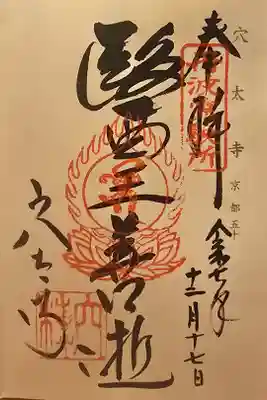 穴太寺 京都五十
奉拝
令和七年
十二月十七日
醫王善逝
穴太寺